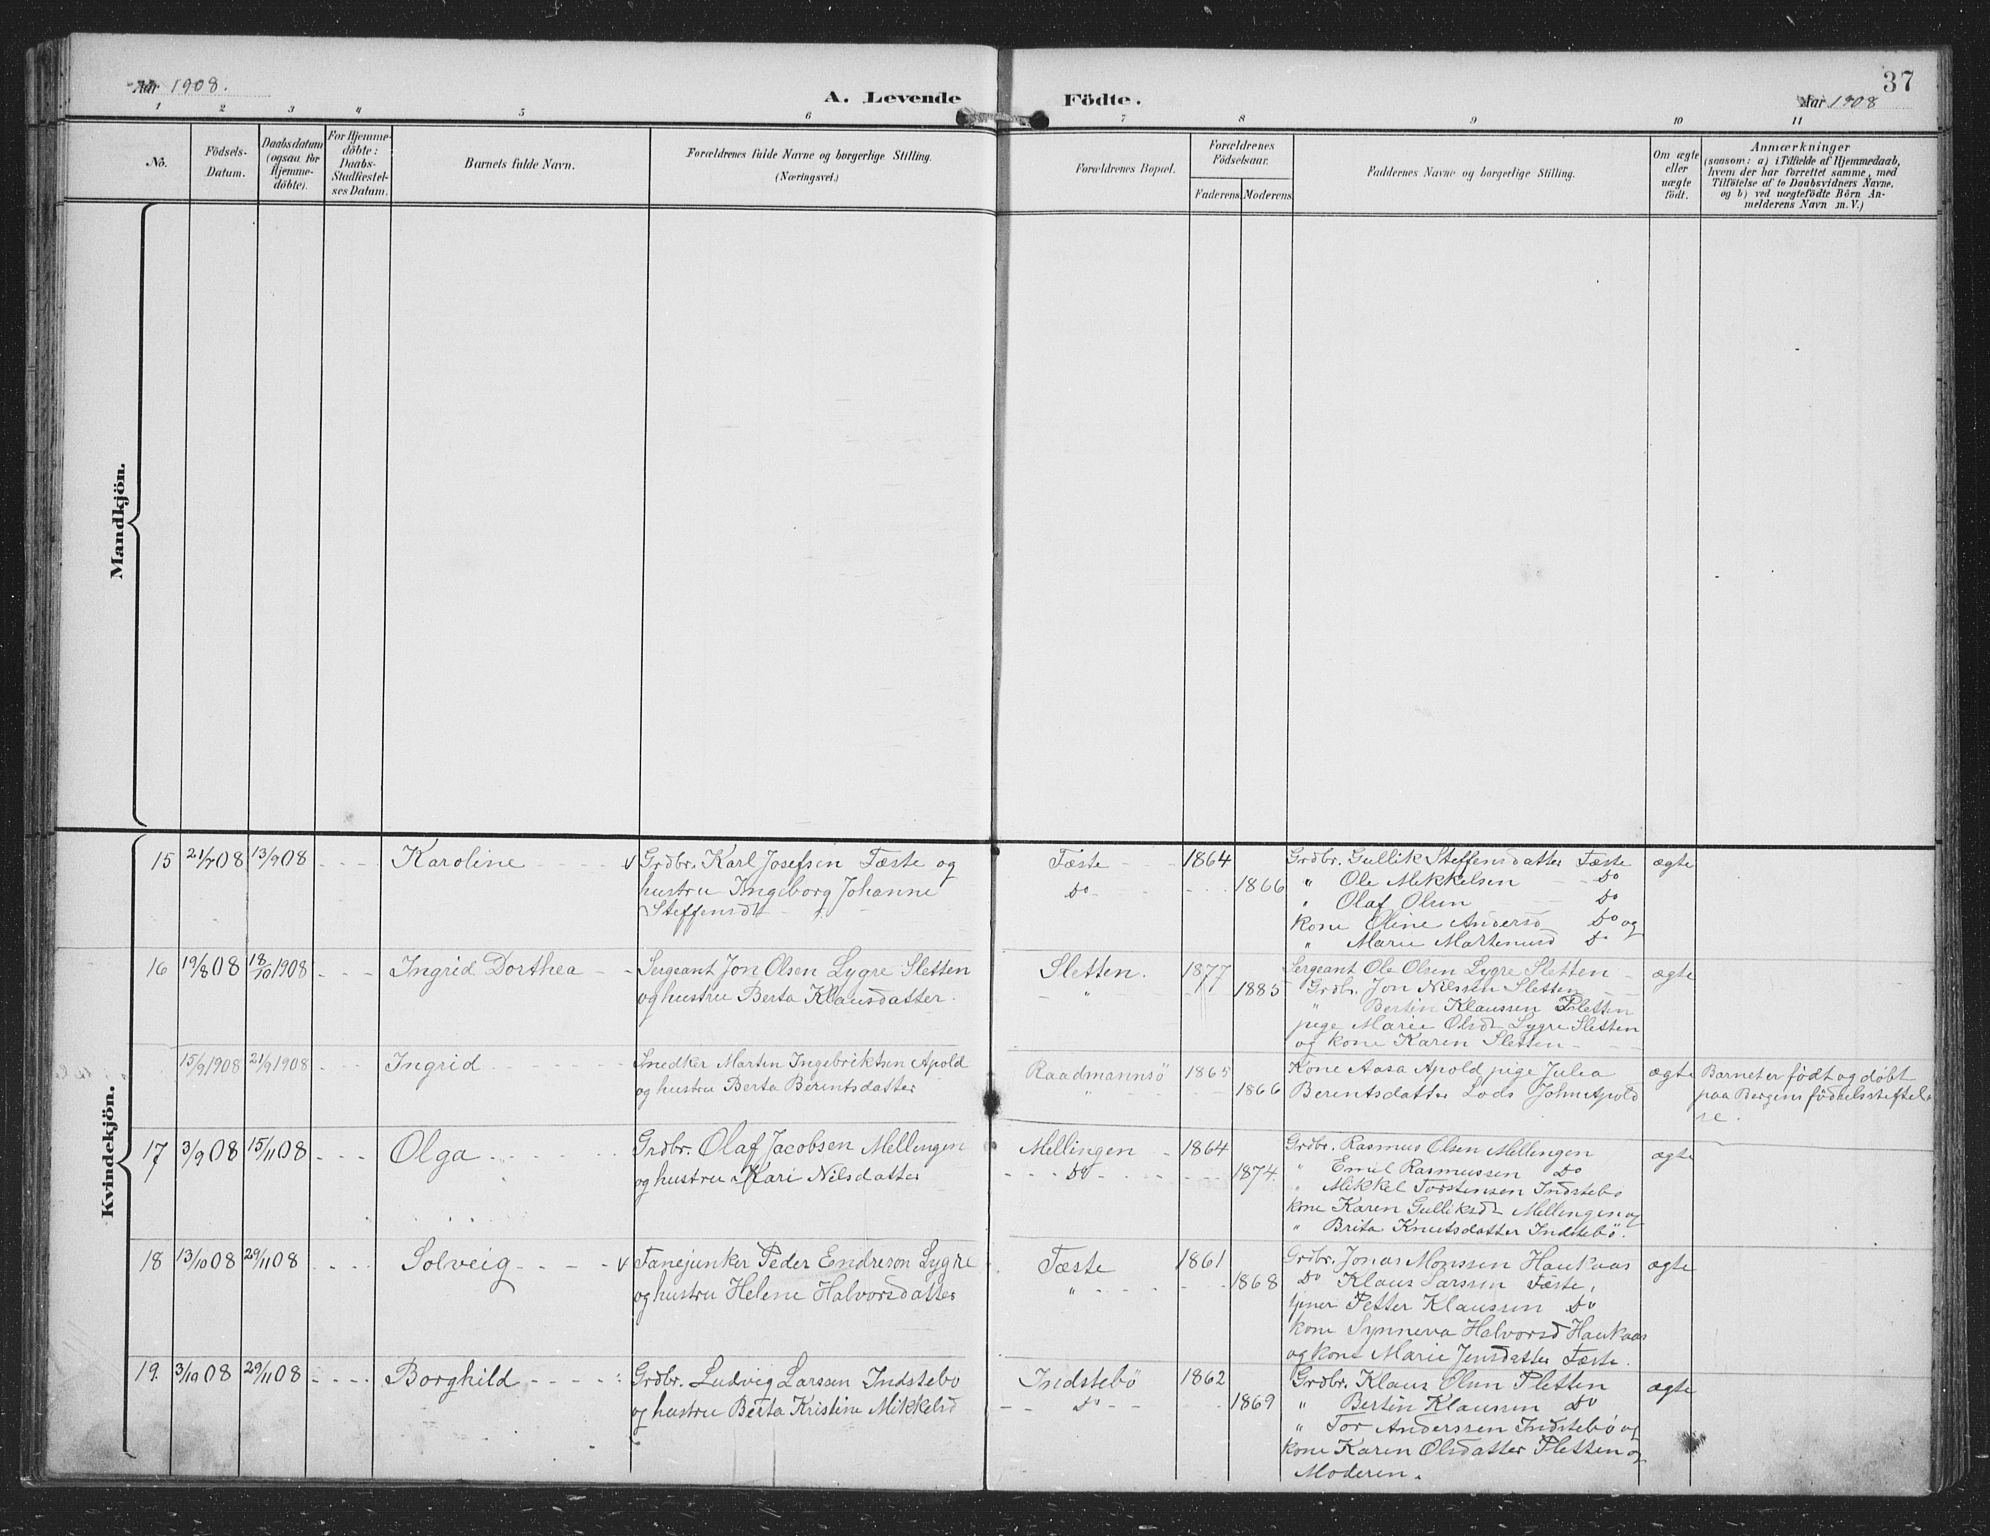 Aar 1908.
A. Levende Födte.
37
Aar 1908
1 2 3 4 5 6 7 8 9 10 11
No.
Födsels-
Datum.
Daabsdatum
(ogsaa for
Hjemme-
döbte).
For Hjemme-
döbte:
Daabs-
Stadfæstel-
ses Datum.
Barnets fulde Navn.
Forældrenes fulde Navne og borgerlige Stilling.
(Næringsvei.)
Forældrenes Bopæl.
Forældrenes
Födselsaar.
Faderens Moderens
Faddernes Navne og borgerlige Stilling.
Om ægte
eller
uægte
födt.
Anmærkninger
(saasom: a) i Tilfælde af Hjemmedaab,
hvem der har forrettet samme, med
Tilföielse af to Daabsvidners Navne,
og b) ved uægtefödte Börn An-
melderens Navn m. V.)
Mandkjön.
Kvindekjön.
15 21/7 08 13/9 08 Karoline
Grdbr. Karl Josefsen Tæste og
hustru Ingeborg Johanne
Steffensdt
Tæste 1864
Do 1866
Grdbr. Gullik Steffensdatter Tæste
" Ole Mikkelsen Do
" Olaf Olsen Do
kone Oline Andersd Do og
" Marie Martenusd Do
ægte
16 19/8 08 18/10 1908 Ingrid Dorthea
Sergeant Jon Olsen Lygre Sletten
og hustru Berta Klausdatter.
Sletten. 1877
" 1885
Sergeant Ole Olsen Lygre Sletten
Grdb. Jon Nilssen Sletten
" Bertin Klaussen Sletten
pige Marie Olsdt Lygre Sletten
og kone Karen Sletten
ægte
15/9 1908 21/9 1908 Ingrid
Snedker Martin Ingebriktsen Apold
og hustru Berta Berentsdatter
Raadmannsö 1865
" 1866
Kone Aasa Apold pige Julia
Berentsdatter Lods John Apold
ægte
Barnet er födt og döbt
paa Bergens födselsstiftel
se.
17 3/9 08 15/11 08 Olga
Grdbr. Olaf Jacobsen Mellingen
og hustru Kari Nilsdatter
Mellingen 1864
Do 1874.
Grdbr. Rasmus Olsen Mellingen
" Emil Rasmussen Do
" Mikkel Torstensen Indstebö
kone Karen Gulliksdt Mellingen og
" Brita Knutsdatter Indstebö.
ægte
18 13/10 08 29/11 08 Solveig
Fanejunker Peder Endreson Lygre
og hustru Helene Halvorsdatter
Tæste 1861
" 1868
Grdbr. Jonas Monssen Haukaas
Do Klaus Larssen Tæste,
tjener Petter Klaussen Do
kone Synneva Halvorsd Haukaas
og kone Marie Jensdatter Tæste.
ægte
19. 3/10 08 29/11 08 Borghild
Grdbr. Ludvig Larssen Indstebo
og hustru Berta Kristine Mikkelsd
Indstebö 1862
Do 1869
Grdbr. Klaus Olsen Sletten
" Bertin Klaussen Do
" Tor Anderssen Indstebö og
kone Karen Olsdatter Sletten og
Moderen.
ægte